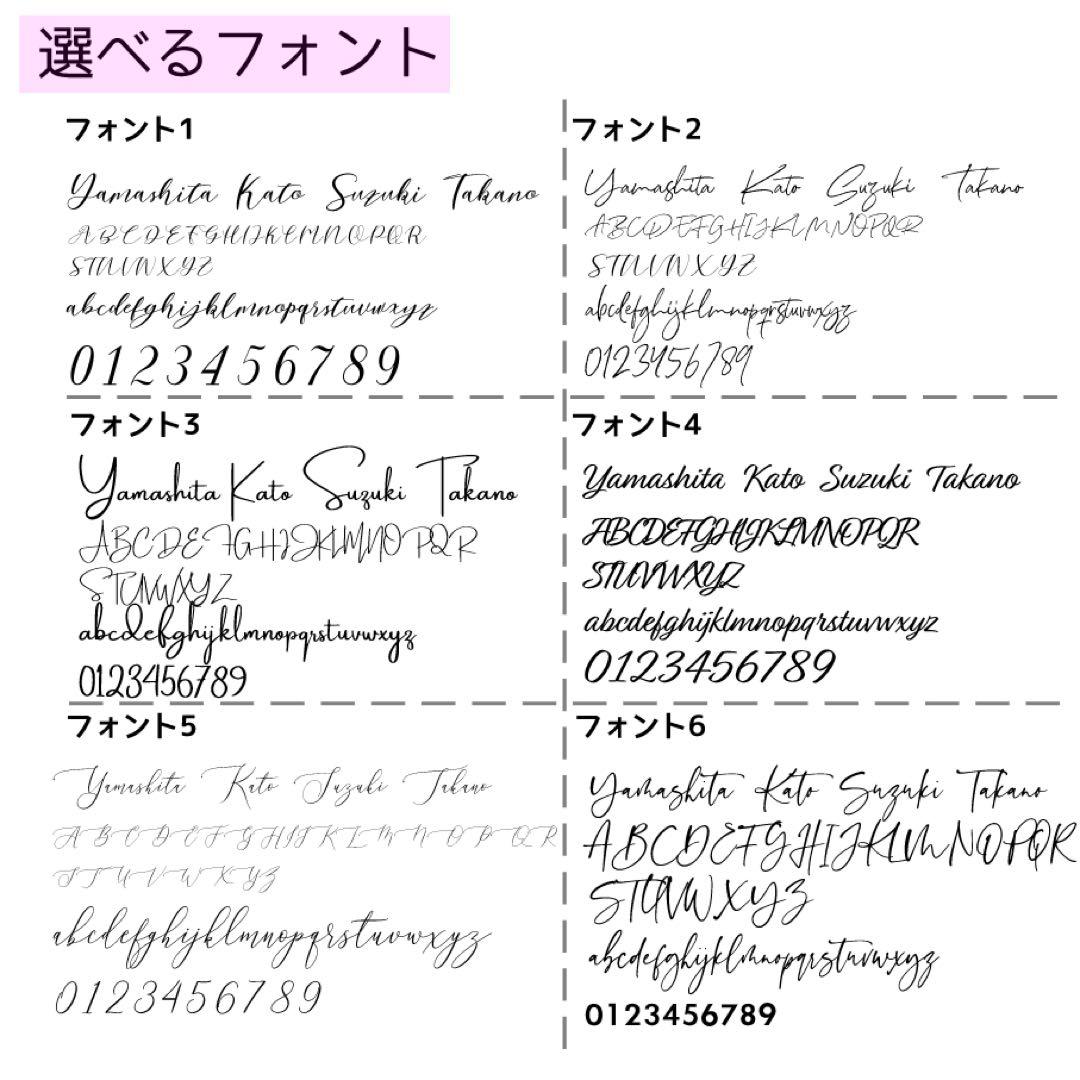 選べるフォント
フォント1
Yamashita Kato Suzuki Takano
ABCDEFGHIJKLMNOPQR
STUVWXYZ
abcdefghijklmnopqrstuvwxyz
0123456789
フォント2
Yamashita Kato Suzuki Takano
ABCDEFGHIJKLMNOPQR
STUVWXYZ
abcdefghijklmnopqrstuvwxyz
0123456789
フォント3
Yamashita Kato Suzuki Takano
ABCDEFGHIJKLMNOPQR
STUVWXYZ
abcdefghijklmnopqrstuvwxyz
0123456789
フォント4
Yamashita Kato Suzuki Takano
ABCDEFGHIJKLMNOPQR
STUVWXYZ
abcdefghijklmnopqrstuvwxyz
0123456789
フォント5
Yamashita Kato Suzuki Takano
ABCDEFGHIJKLMNOPQR
STUVWXYZ
abcdefghijklmnopqrstuvwxyz
0123456789
フォント6
Yamashita Kato Suzuki Takano
ABCDEFGHIJKLMNOPQR
STUVWXYZ
abcdefghijklmnopqrstuvwxyz
0123456789